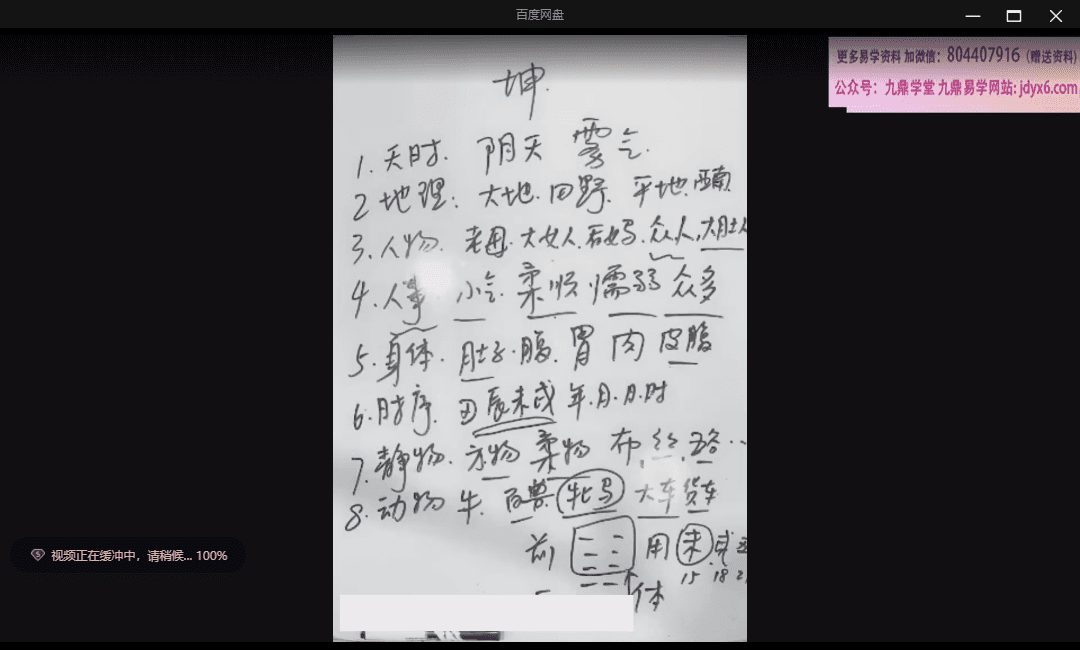 百度网盘
更多易学资料 加微信：804407916（赠送资料）
公众号：九鼎学堂 九鼎易学网站: jdyx6.com
坤
1. 天时. 阴天 雾气.
2 地理: 大地. 田野. 平地. 西南
3. 人物. 老母. 大女人. 后妈. 众人, 大肚人
4. 人事 小气. 柔顺 懦弱 众多
5. 身体. 肚子. 腹. 胃 肉 皮腹
6. 时序. 丑辰未戌 年. 月. 日. 时
7. 静物. 方物 柔物 布, 丝,
8. 动物 牛. 百兽 牝马 大车 货车
前 用 未 戌
15 18
体
视频正在缓冲中，请稍候... 100%